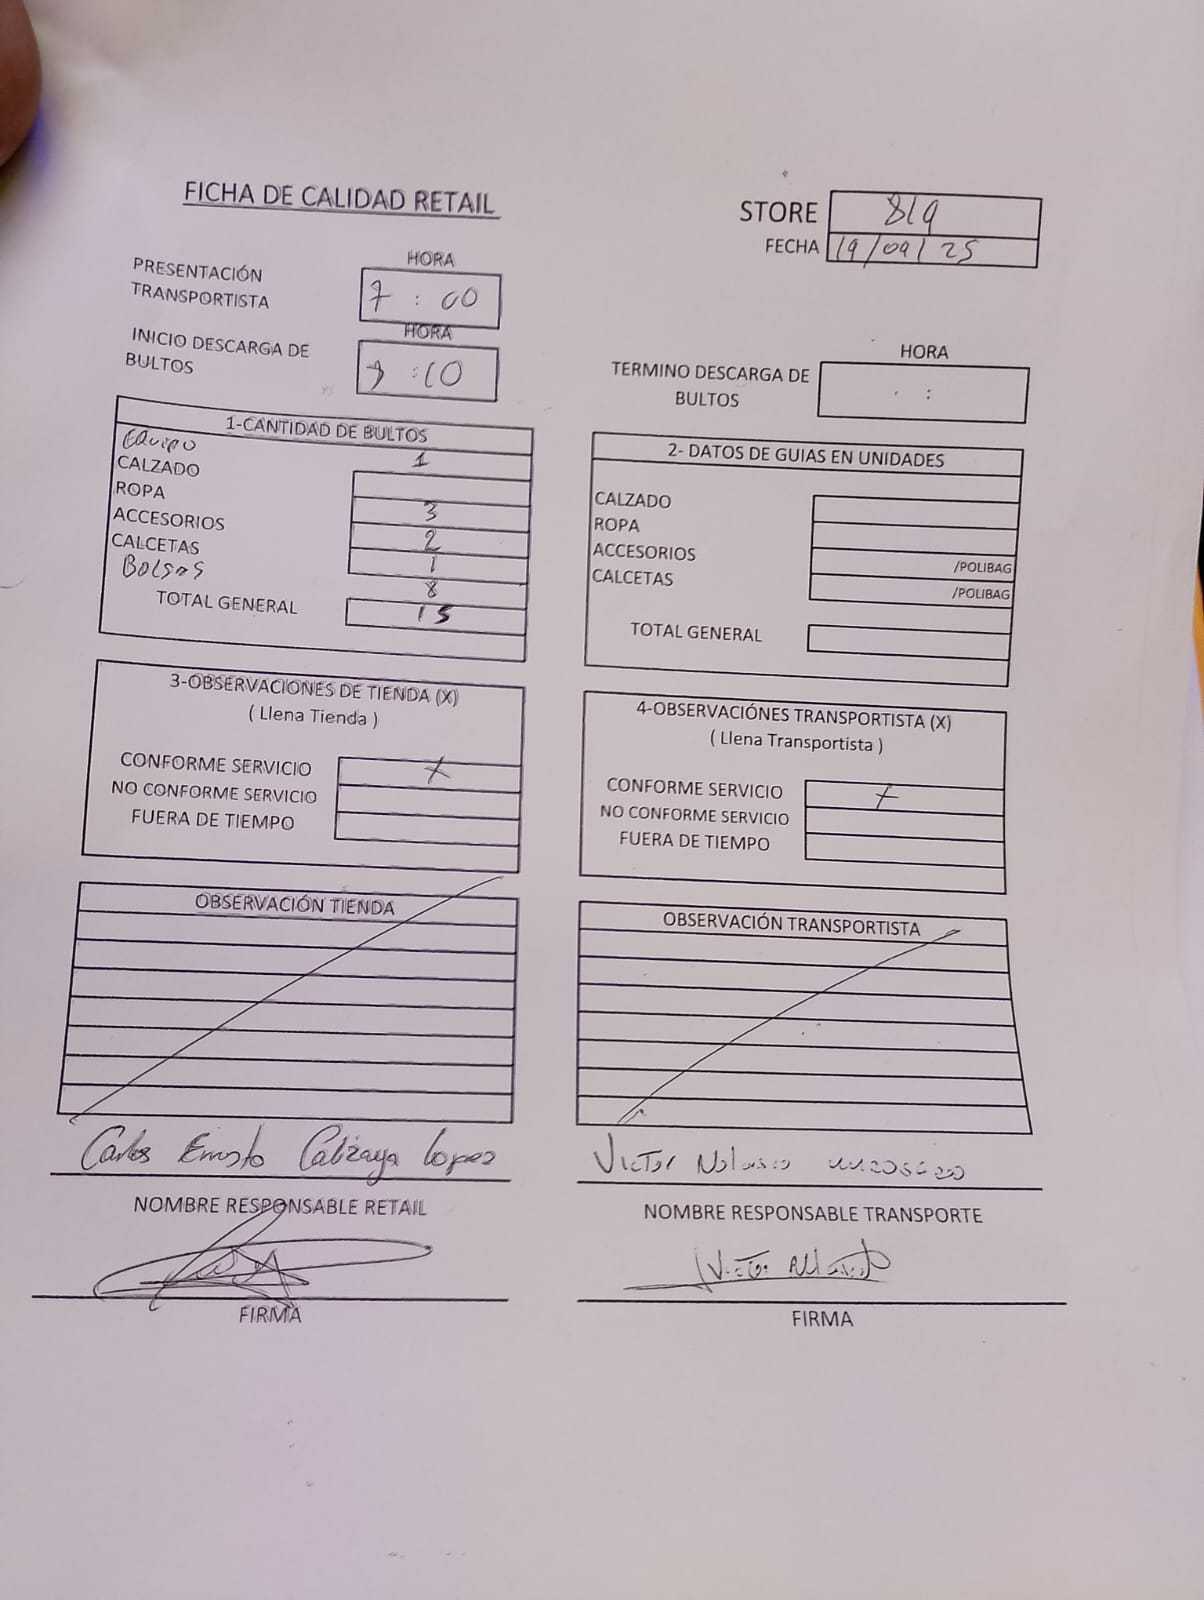 FICHA DE CALIDAD RETAIL
STORE 819
FECHA 19/09/25
HORA
PRESENTACIÓN TRANSPORTISTA 7 : 00
HORA
INICIO DESCARGA DE BULTOS :10
HORA
TERMINO DESCARGA DE BULTOS :
1-CANTIDAD DE BULTOS
Equipo 1
CALZADO
ROPA 3
ACCESORIOS 2
CALCETAS 1
Bolsas 8
TOTAL GENERAL 15
2- DATOS DE GUIAS EN UNIDADES
CALZADO
ROPA
ACCESORIOS /POLIBAG
CALCETAS /POLIBAG
TOTAL GENERAL
3-OBSERVACIONES DE TIENDA (X)
( Llena Tienda )
CONFORME SERVICIO X
NO CONFORME SERVICIO
FUERA DE TIEMPO
4-OBSERVACIÓNES TRANSPORTISTA (X)
( Llena Transportista )
CONFORME SERVICIO X
NO CONFORME SERVICIO
FUERA DE TIEMPO
OBSERVACIÓN TIENDA
OBSERVACIÓN TRANSPORTISTA
Carlos Ernesto Calizaya Lopez
NOMBRE RESPONSABLE RETAIL
FIRMA
Victor Nolasco
NOMBRE RESPONSABLE TRANSPORTE
Victor
FIRMA